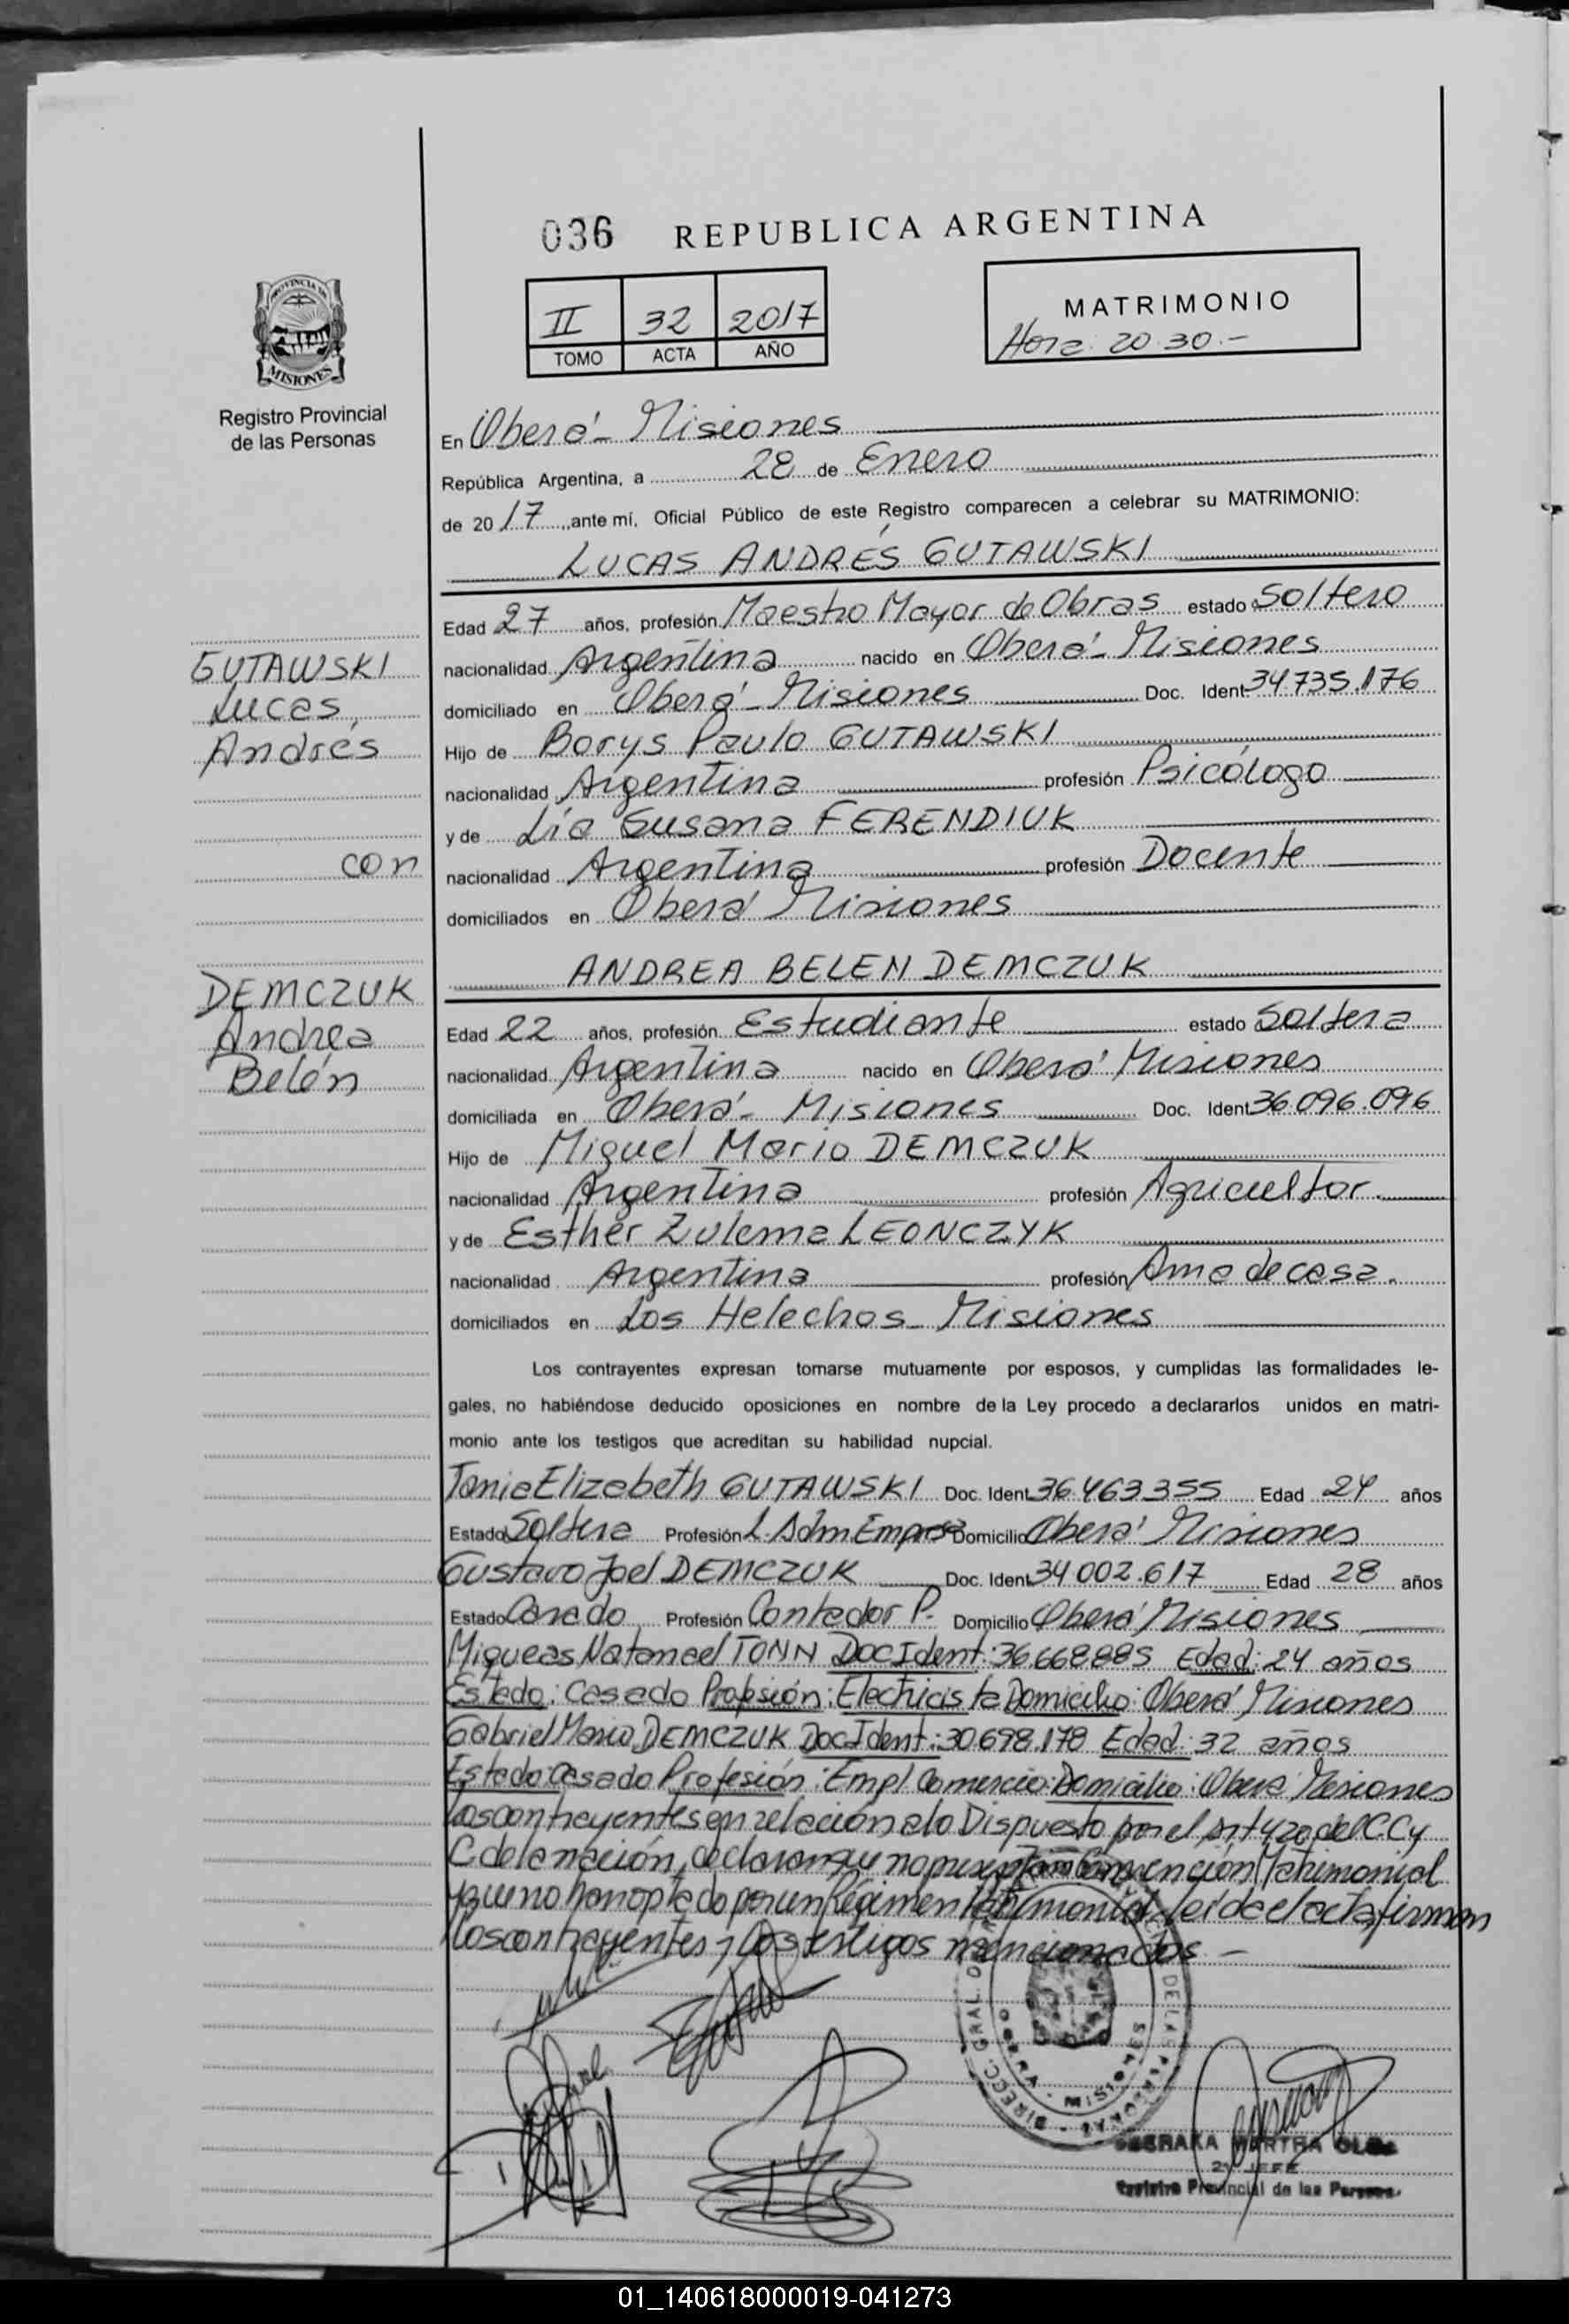 036 REPUBLICA ARGENTINA
II 32 2017
TOMO ACTA AÑO
MATRIMONIO
Hora: 20.30.-
PROVINCIA DE
MISIONES
Registro Provincial
de las Personas
En Oberá - Misiones
República Argentina, a 28 de Enero
de 2017, ante mí, Oficial Público de este Registro comparecen a celebrar su MATRIMONIO:
LUCAS ANDRÉS GUTAWSKI
Edad 27 años, profesión Maestro Mayor de Obras estado Soltero
nacionalidad Argentina nacido en Oberá - Misiones
domiciliado en Oberá - Misiones Doc. Ident 34735.176
Hijo de Borys Paulo GUTAWSKI
nacionalidad Argentina profesión Psicólogo
y de Lía Susana FERENDIUK
nacionalidad Argentina profesión Docente
domiciliados en Oberá Misiones
GUTAWSKI
Lucas,
Andrés
con
DEMCZUK
Andrea
Belén
ANDREA BELEN DEMCZUK
Edad 22 años, profesión Estudiante estado Soltera
nacionalidad Argentina nacido en Oberá Misiones
domiciliada en Oberá - Misiones Doc. Ident 36.096.096
Hijo de Miguel Mario DEMCZUK
nacionalidad Argentina profesión Agricultor.
y de Esther Zulema LEONCZYK
nacionalidad Argentina profesión Ama de casa.
domiciliados en Los Helechos - Misiones
Los contrayentes expresan tomarse mutuamente por esposos, y cumplidas las formalidades le-
gales, no habiéndose deducido oposiciones en nombre de la Ley procedo a declararlos unidos en matri-
monio ante los testigos que acreditan su habilidad nupcial.
Tania Elizabeth GUTAWSKI Doc. Ident 36.463.355 Edad 24 años
Estado Soltera Profesión L. Adm Empresa Domicilio Oberá Misiones
Gustavo Joel DEMCZUK Doc. Ident 34.002.617 Edad 28 años
Estado Casado Profesión Contador P. Domicilio Oberá Misiones
Miqueas Natanael TONN Doc Ident: 36.668.885 Edad: 24 años
Estado: Casado Profesión: Electricista Domicilio: Oberá Misiones
Gabriel Mario DEMCZUK Doc Ident: 30.698.178 Edad: 32 años
Estado: Casado Profesión: Empl Comercio. Domicilio: Oberá Misiones
Los contrayentes en relación a lo Dispuesto por el Art 420 del C.C y
C de la nación, declaran que no presentan Convención Matrimonial
y que no han optado por un Régimen Patrimonial. Leída el acta firman
los contrayentes y los testigos mencionados -
MARTHA OLGA
2° JEFE
Registro Provincial de las Personas
01_140618000019-041273